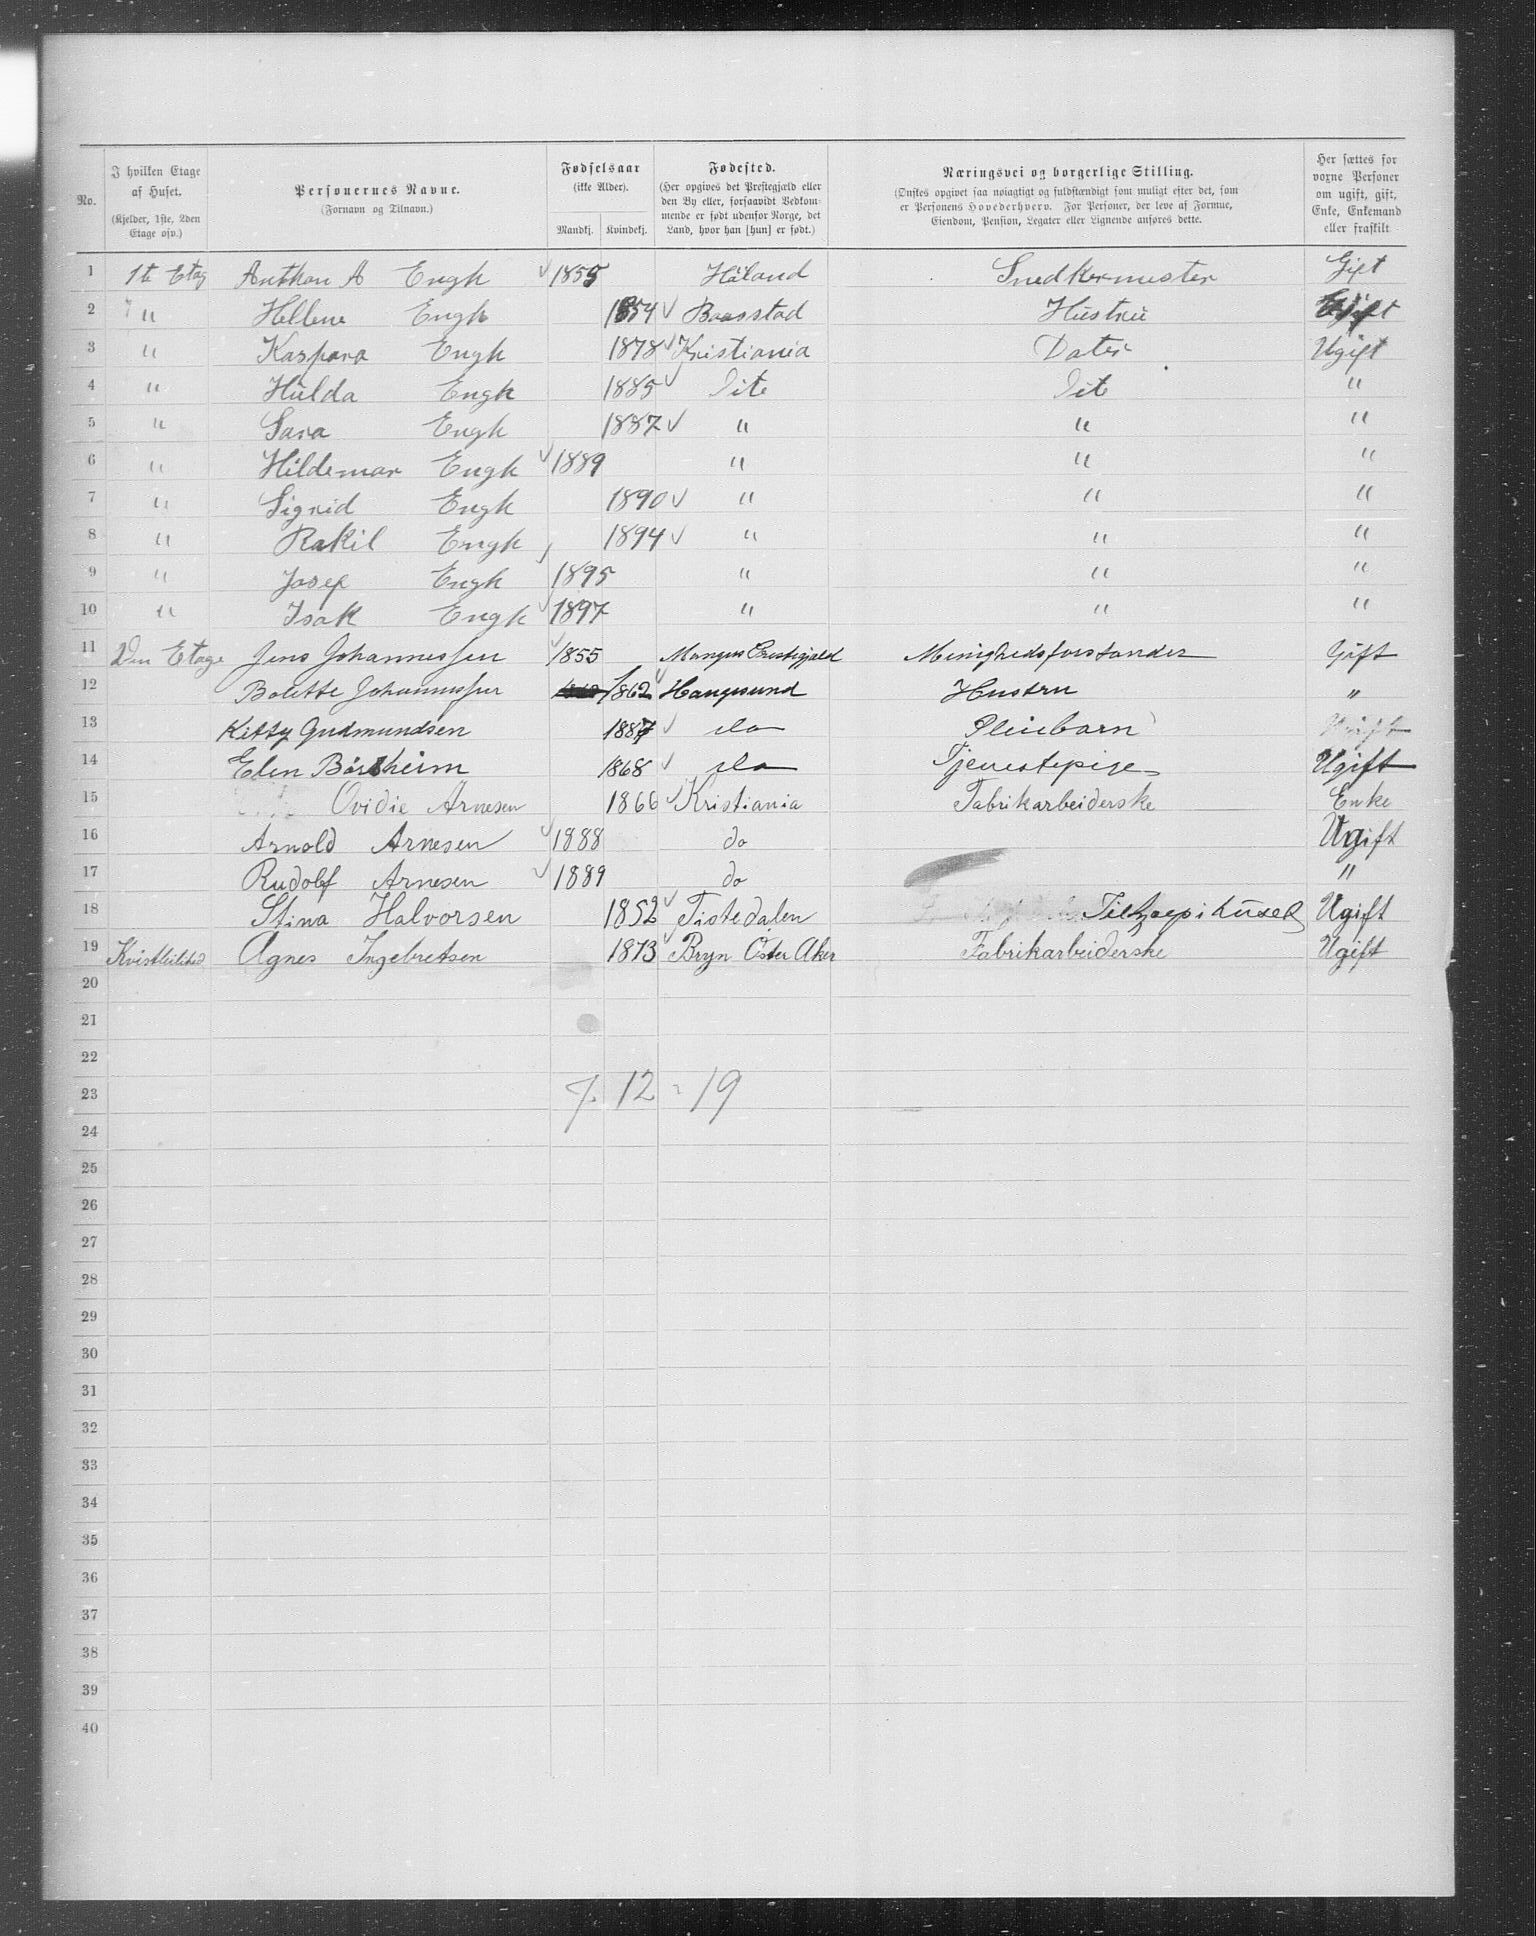 No.
I hvilken Etage af Huset.
(Kjelder, 1ste, 2den Etage osv.)
Personernes Navne.
(Fornavn og Tilnavn.)
Fødselsaar
(ikke Alder).
Mandkj. Kvindekj.
Fødested.
(Her opgives det Prestegjæld eller den By eller, forsaavidt Vedkommende er født udenfor Norge, det Land, hvor han [hun] er født.)
Næringsvei og borgerlige Stilling.
(Ønskes opgivet saa nøiagtigt og fuldstændigt som muligt efter det, som er Personens Hovederhverv. For Personer, der leve af Formue, Eiendom, Pension, Legater eller Lignende anføres dette.
Her sættes for voxne Personer om ugift, gift, Enke, Enkemand eller fraskilt
1 1te Etag Anthon A Engh 1855 Håland Snedkermester Gift
2 " Hellene Engh 1854 Baastad Hustru Gift
3 " Kaspara Engh 1878 Kristiania Dater Ugift
4 " Hulda Engh 1885 Dite Dite "
5 " Sara Engh 1887 " " "
6 " Hildemar Engh 1889 " " "
7 " Sigrid Engh 1890 " " "
8 " Rakil Engh 1894 " " "
9 " Josef Engh 1895 " " "
10 " Isak Engh 1897 " " "
11 2den Etage Jens Johannessen 1855 Mangers Prestegjæld Menighedsforstander Gift
12 Bolette Johannessen 1862 Haugesund Hustru "
13 Kitty Gudmundsen 1887 do Pleiebarn Ugift
14 Elen Börsheim 1868 do Tjenestepige Ugift
15 Ovidie Arnesen 1866 Kristiania Fabrikarbeiderske Enke
16 Arnold Arnesen 1888 do Ugift
17 Rudolf Arnesen 1889 do "
18 Stina Halvorsen 1852 Tistedalen Tilhaap i huset Ugift
19 Kvistleilihed Agnes Ingebretsen 1873 Bryn Öster Aker Fabrikarbeiderske Ugift
20
21
22
23 7. 12 = 19
24
25
26
27
28
29
30
31
32
33
34
35
36
37
38
39
40